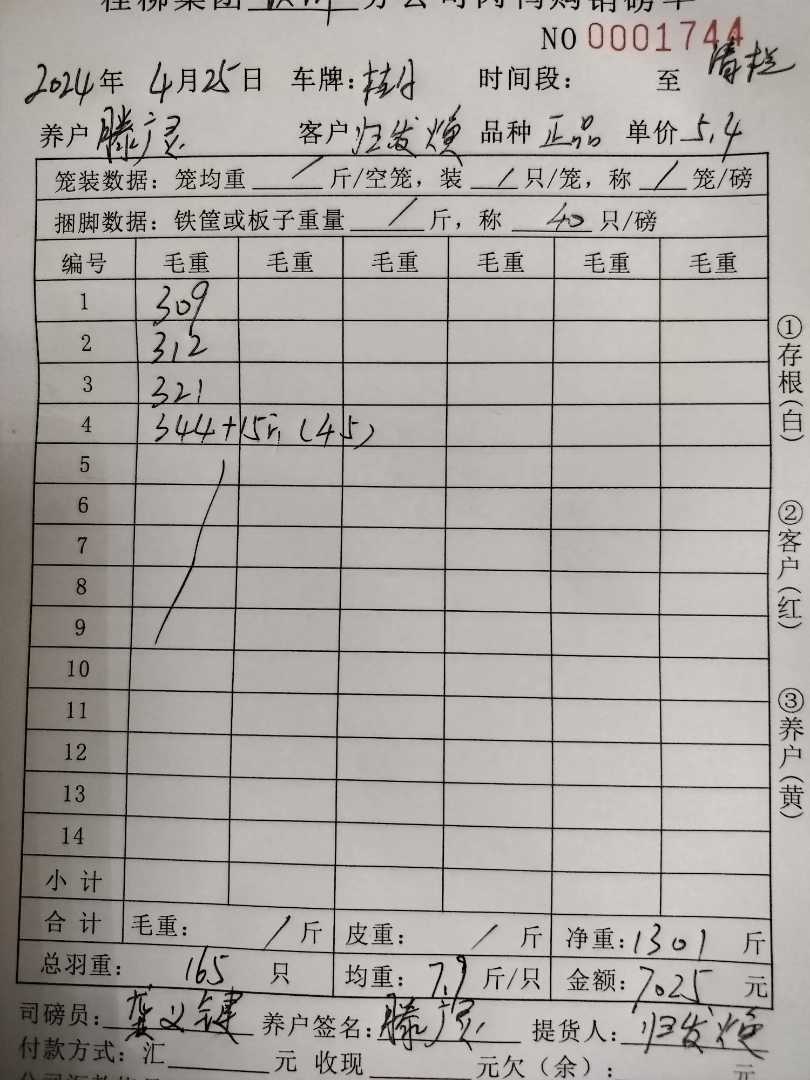 桂柳集团 分公司肉鸭购销磅单
NO 0001744
2024年 4月25日 车牌: 时间段: 至 清栏
养户 滕广灵 客户 归发焕 品种 正品 单价 5.4
笼装数据: 笼均重 / 斤/空笼, 装 / 只/笼, 称 / 笼/磅
捆脚数据: 铁筐或板子重量 / 斤, 称 40 只/磅
编号 毛重 毛重 毛重 毛重 毛重 毛重
1 309
2 312
3 321
4 344+15斤(45)
5
6
7
8
9
10
11
12
13
14
小计
合计 毛重: / 斤 皮重: / 斤 净重: 1301 斤
总羽重: 165 只 均重: 7.9 斤/只 金额: 7025 元
司磅员: 龚义键 养户签名: 提货人: 归发焕
付款方式: 汇 元 收现 元欠(余): 元
①存根(白)
②客户(红)
③养户(黄)